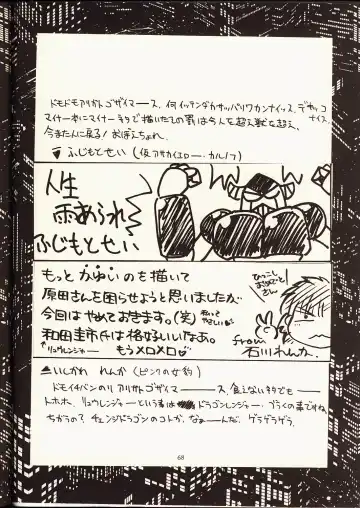 ドモドモアリガトゴザイマース、何イッテンダカサッパリワカンナイッス、デモッコナイス
マイナー本にマイナーネタで描いたこの罪は今人を超え獣を超え、
今また人に戻る! おぼえちょれ、
ふじもとせい(仮アサカイエロー・カルノフ)
人生
雨あられ
ふじもとせい
もっとかゆいのも描いて
原田さんを困らせようと思いましたが
今回はやめておきます。(笑)
和田圭市氏は格好いいなあ。
リュウレンジャー もうメロメロ
ひっこし
おめでとう
さん
from
石川れんか.
いしかわ れんか(ピンクの女豹)
ドモイチバンのリアリガトゴザイマース、食えないネタでも
トホホ、リュウレンジャーという者はドラゴンレンジャー・ブライの事ですね、
ちがうの? チェンジドラゴンのコトか、なぁーんだ、ゲラゲラゲラ、
68